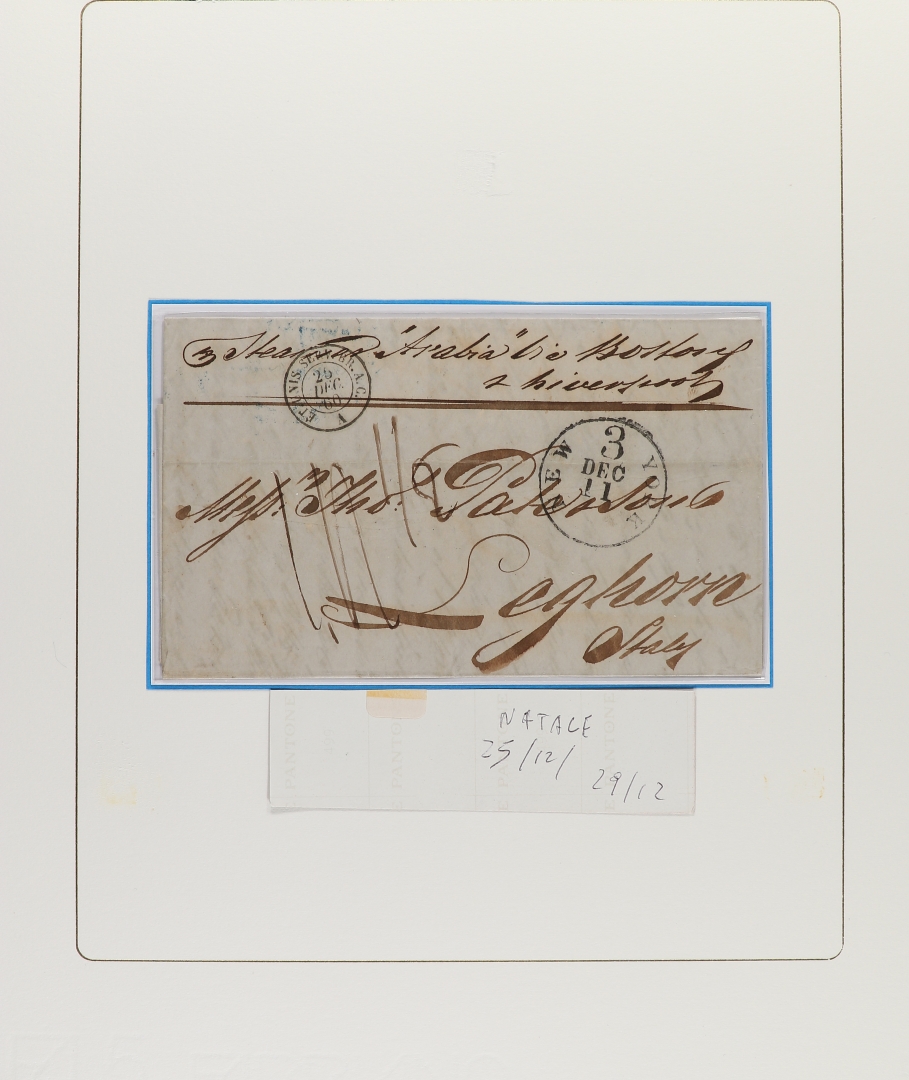 Steamer "Arabia" Via Boston
& Liverpool
ET.UNIS.SERV.BR.A.C.
25
DEC
60
A
NEW YK
3
DEC
11
Messrs. Thos.
Leghorn
Italy
NATALE
25/12/
29/12
E PANTONE
E PANTONE
E PANTONE
E PANTONE